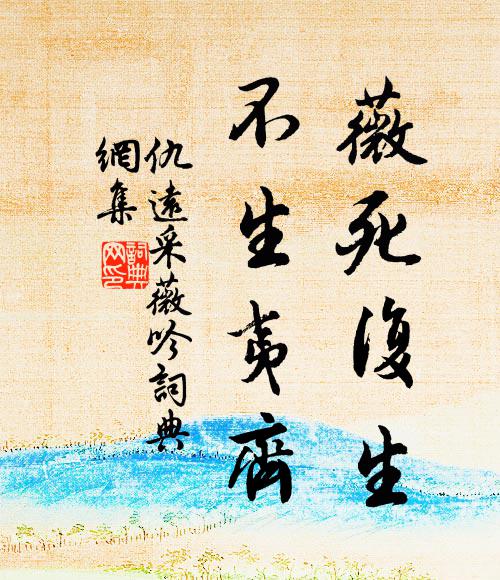 薇死復生
不生夷齊
仇遠采薇吟詞典
網集
詞典
网印